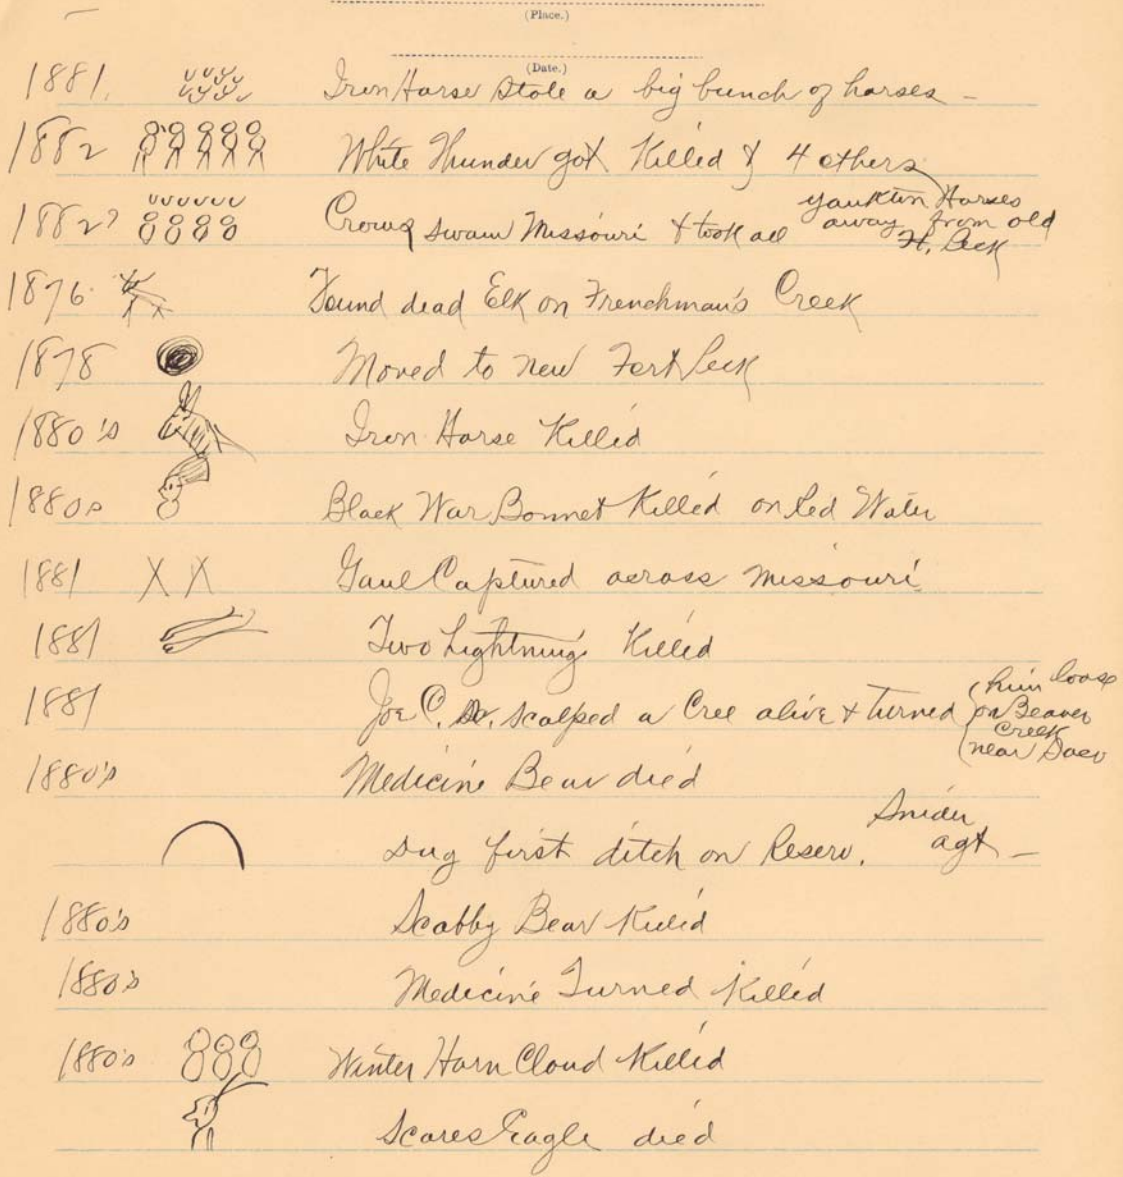 (Place.)
(Date.)
1881. Iron Horse Stole a big bunch of horses –
1882 White Thunder got Killed & 4 others
1882? Crows swam Missouri & took all Yankton Horses away from old Ft. Peck
1876. Found dead Elk on Frenchman's Creek
1878 Moved to new Fort Peck
1880's Iron Horse Killed
1880s Black War Bonnet Killed on Red Water
1881 X X Gaul Captured across Missouri
1881 Two Lightning Killed
1881 Joe C. scalped a Cree alive & turned (him loose on Beaver Creek (near Saco
1880's Medicine Bear died
Dug first ditch on Reserv. Snider agt –
1880's Scabby Bear Killed
1880's Medicine Turned Killed
1880's Winter Horn Cloud Killed
Scares Eagle died